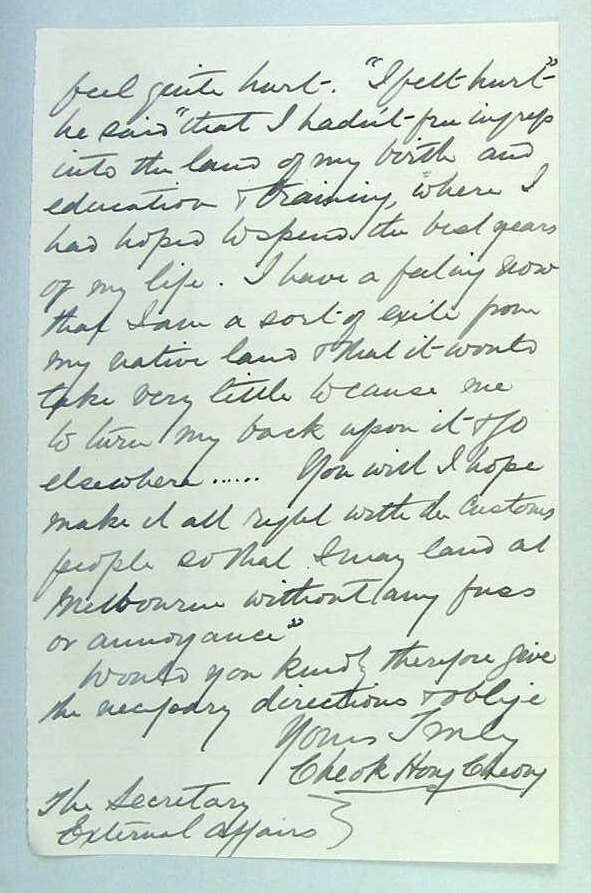 feel quite hurt. "I felt hurt"
he said "that I hadn't free ingress
into the land of my birth and
education & training, where I
had hoped to spend the best years
of my life. I have a feeling now
that I am a sort of exile from
my native land & that it would
take very little to cause me
to turn my back upon it & go
elsewhere ...... You will I hope
make it all right with the Customs
people so that I may land at
Melbourne without any fuss
or annoyance"
Would you kindly therefore give
the necessary directions & oblige
Yours Truly
Cheok Hong Cheong
The Secretary
External Affairs